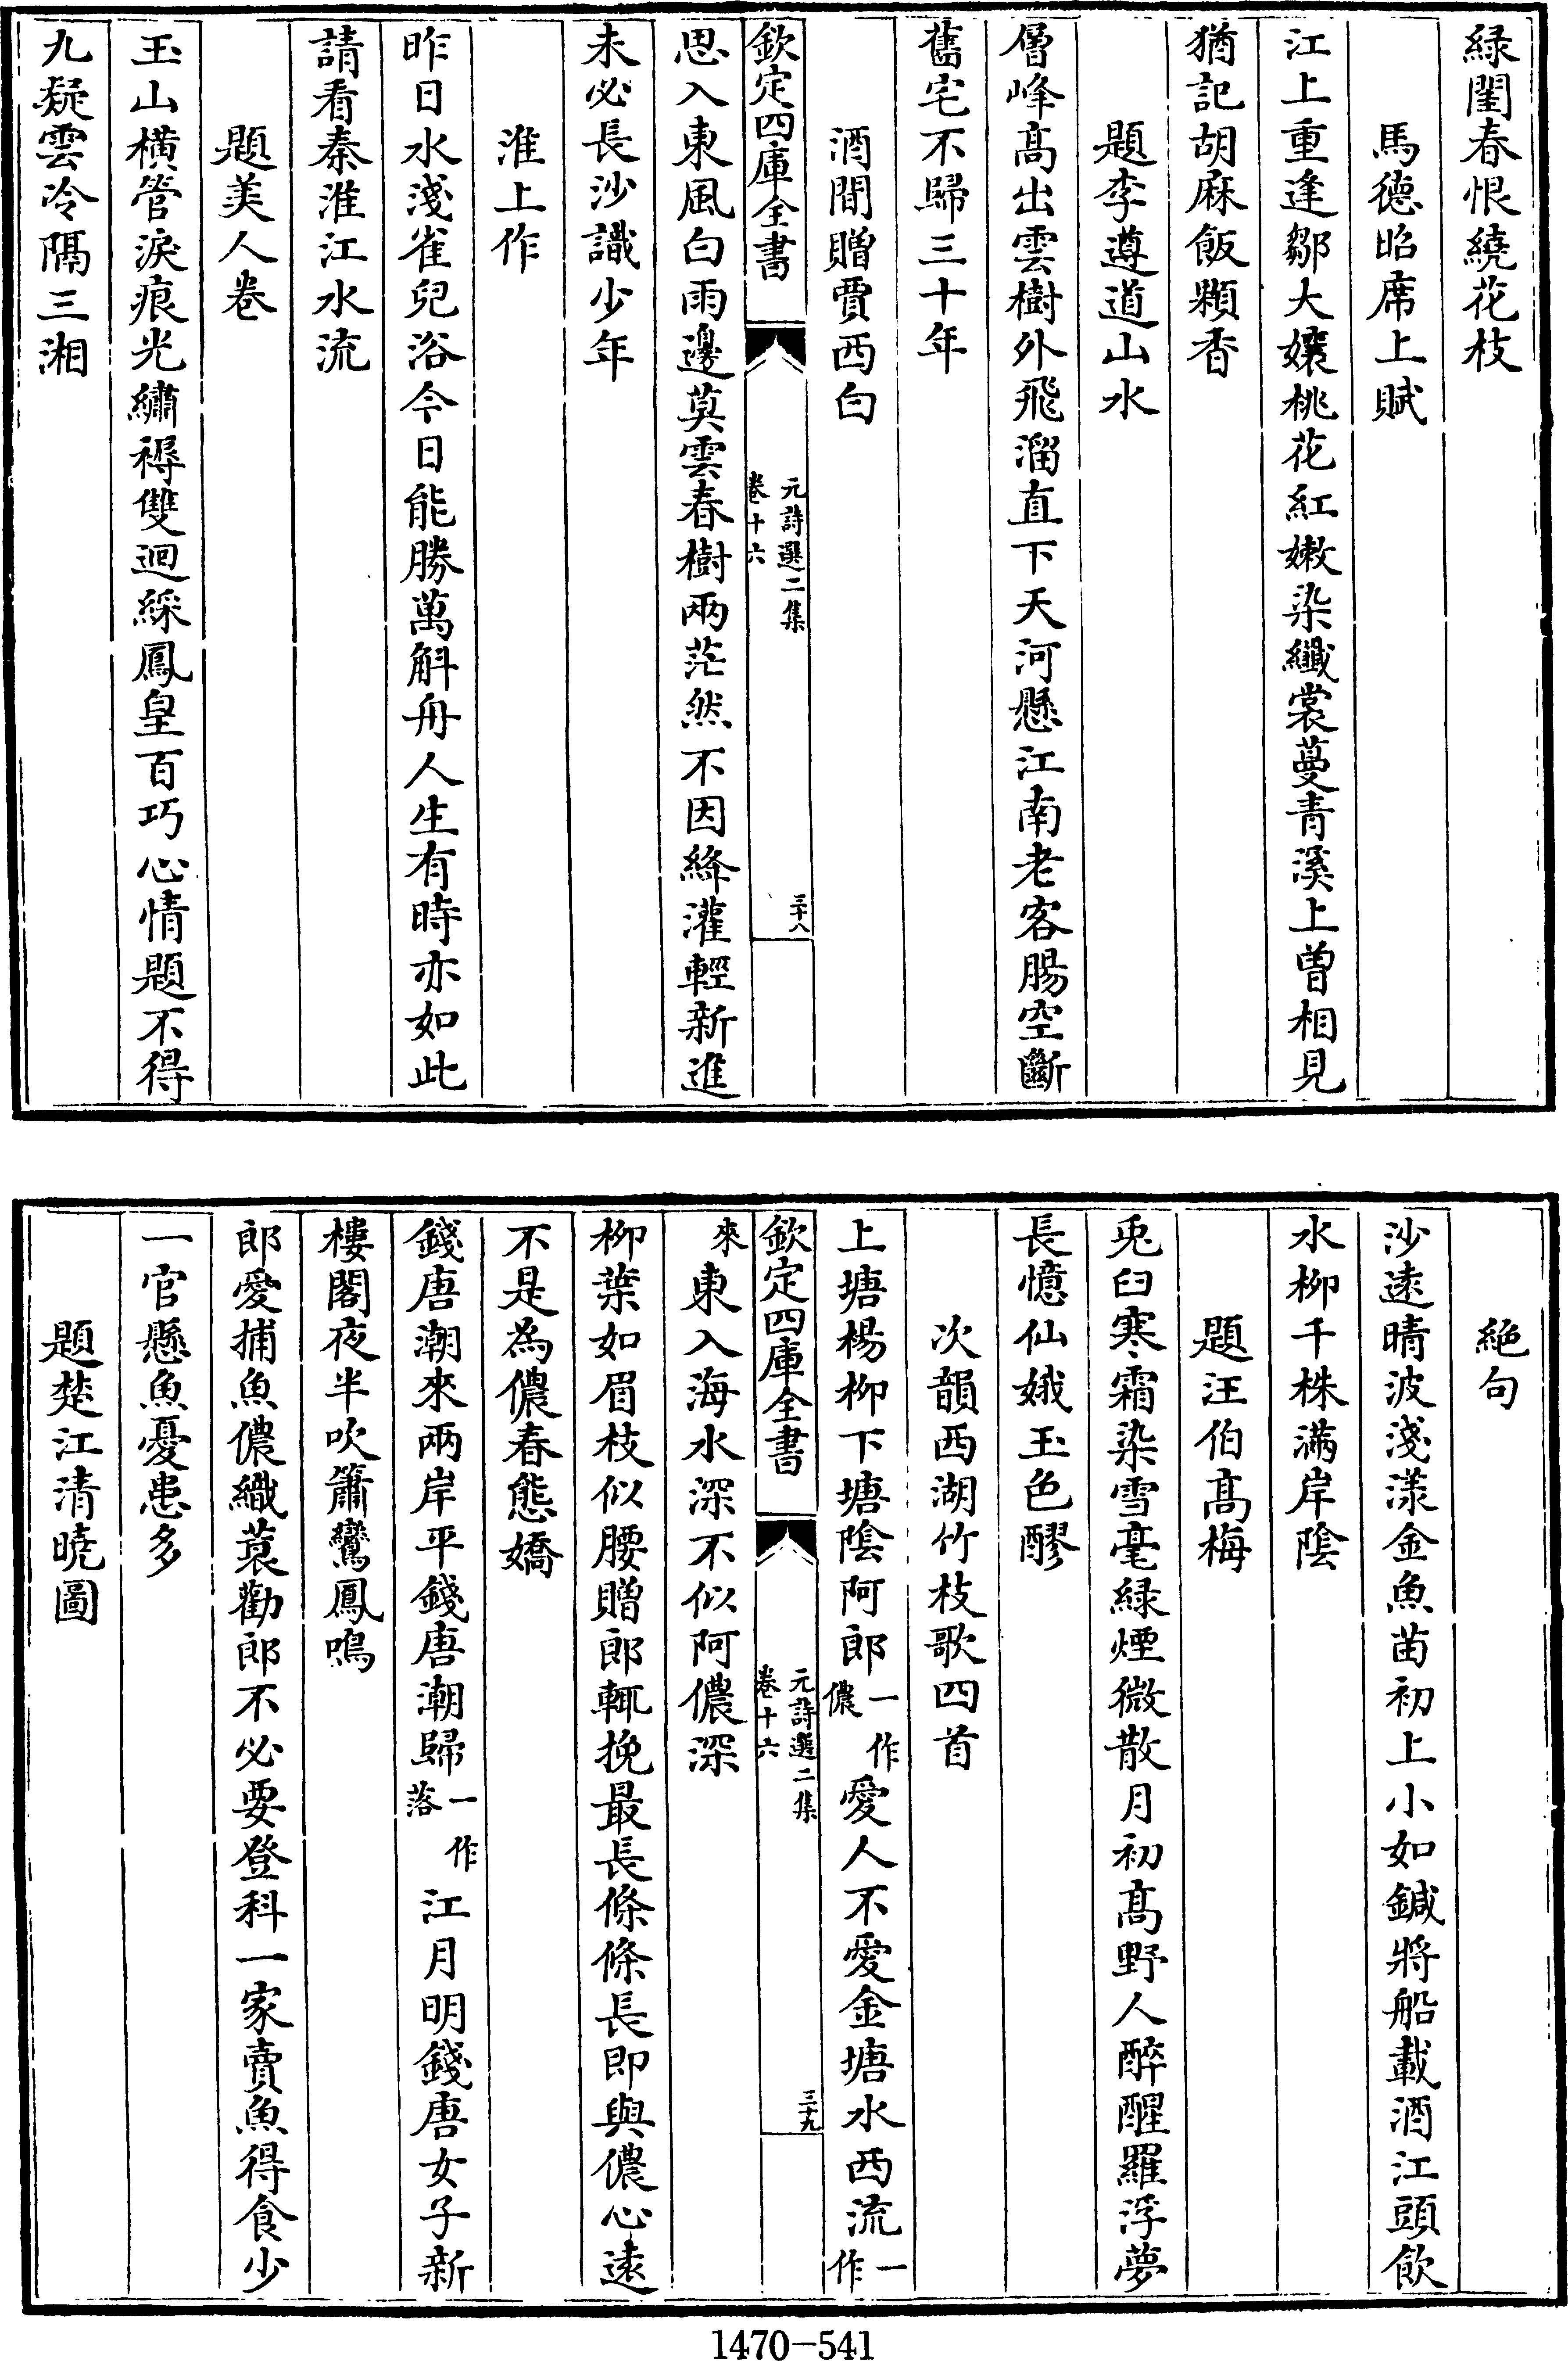 緑閨春恨繞花枝
馬德昭席上賦
江上重逢鄒大孃桃花紅嫩染纖裳蔓青溪上曽相見
猶記胡麻飯顆香
題李遵道山水
層峰髙出雲樹外飛溜直下天河懸江南老客腸空斷
舊宅不歸三十年
酒間贈賈西白
欽定四庫全書
元詩選二集
卷十六
三十八
思入東風白雨邊莫雲春樹兩茫然不因絳灌輕新進
未必長沙識少年
淮上作
昨日水淺雀兒浴今日能勝萬斛舟人生有時亦如此
請看秦淮江水流
題美人卷
玉山橫管淚痕光繡褥雙迴綵鳳皇百巧心情題不得
九疑雲冷隔三湘
絶句
沙遠晴波淺漾金魚苗初上小如鍼將船載酒江頭飲
水柳千株滿岸隂
題汪伯髙梅
兎臼寒霜染雪毫緑煙微散月初髙野人醉醒羅浮夢
長憶仙娥玉色醪
次韻西湖竹枝歌四首
上塘楊柳下塘隂阿郎一作儂愛人不愛金塘水西流一作
欽定四庫全書
元詩選二集
卷十六
三十九
來東入海水深不似阿儂深
柳葉如眉枝似腰贈郎輒挽最長條條長即與儂心遠
不是為儂春態嬌
錢唐潮來兩岸平錢唐潮歸一作落江月明錢唐女子新
樓閣夜半吹簫鸞鳳鳴
郎愛捕魚儂織蓑勸郎不必要登科一家賣魚得食少
一官懸魚憂患多
題楚江清曉圖
1470-541